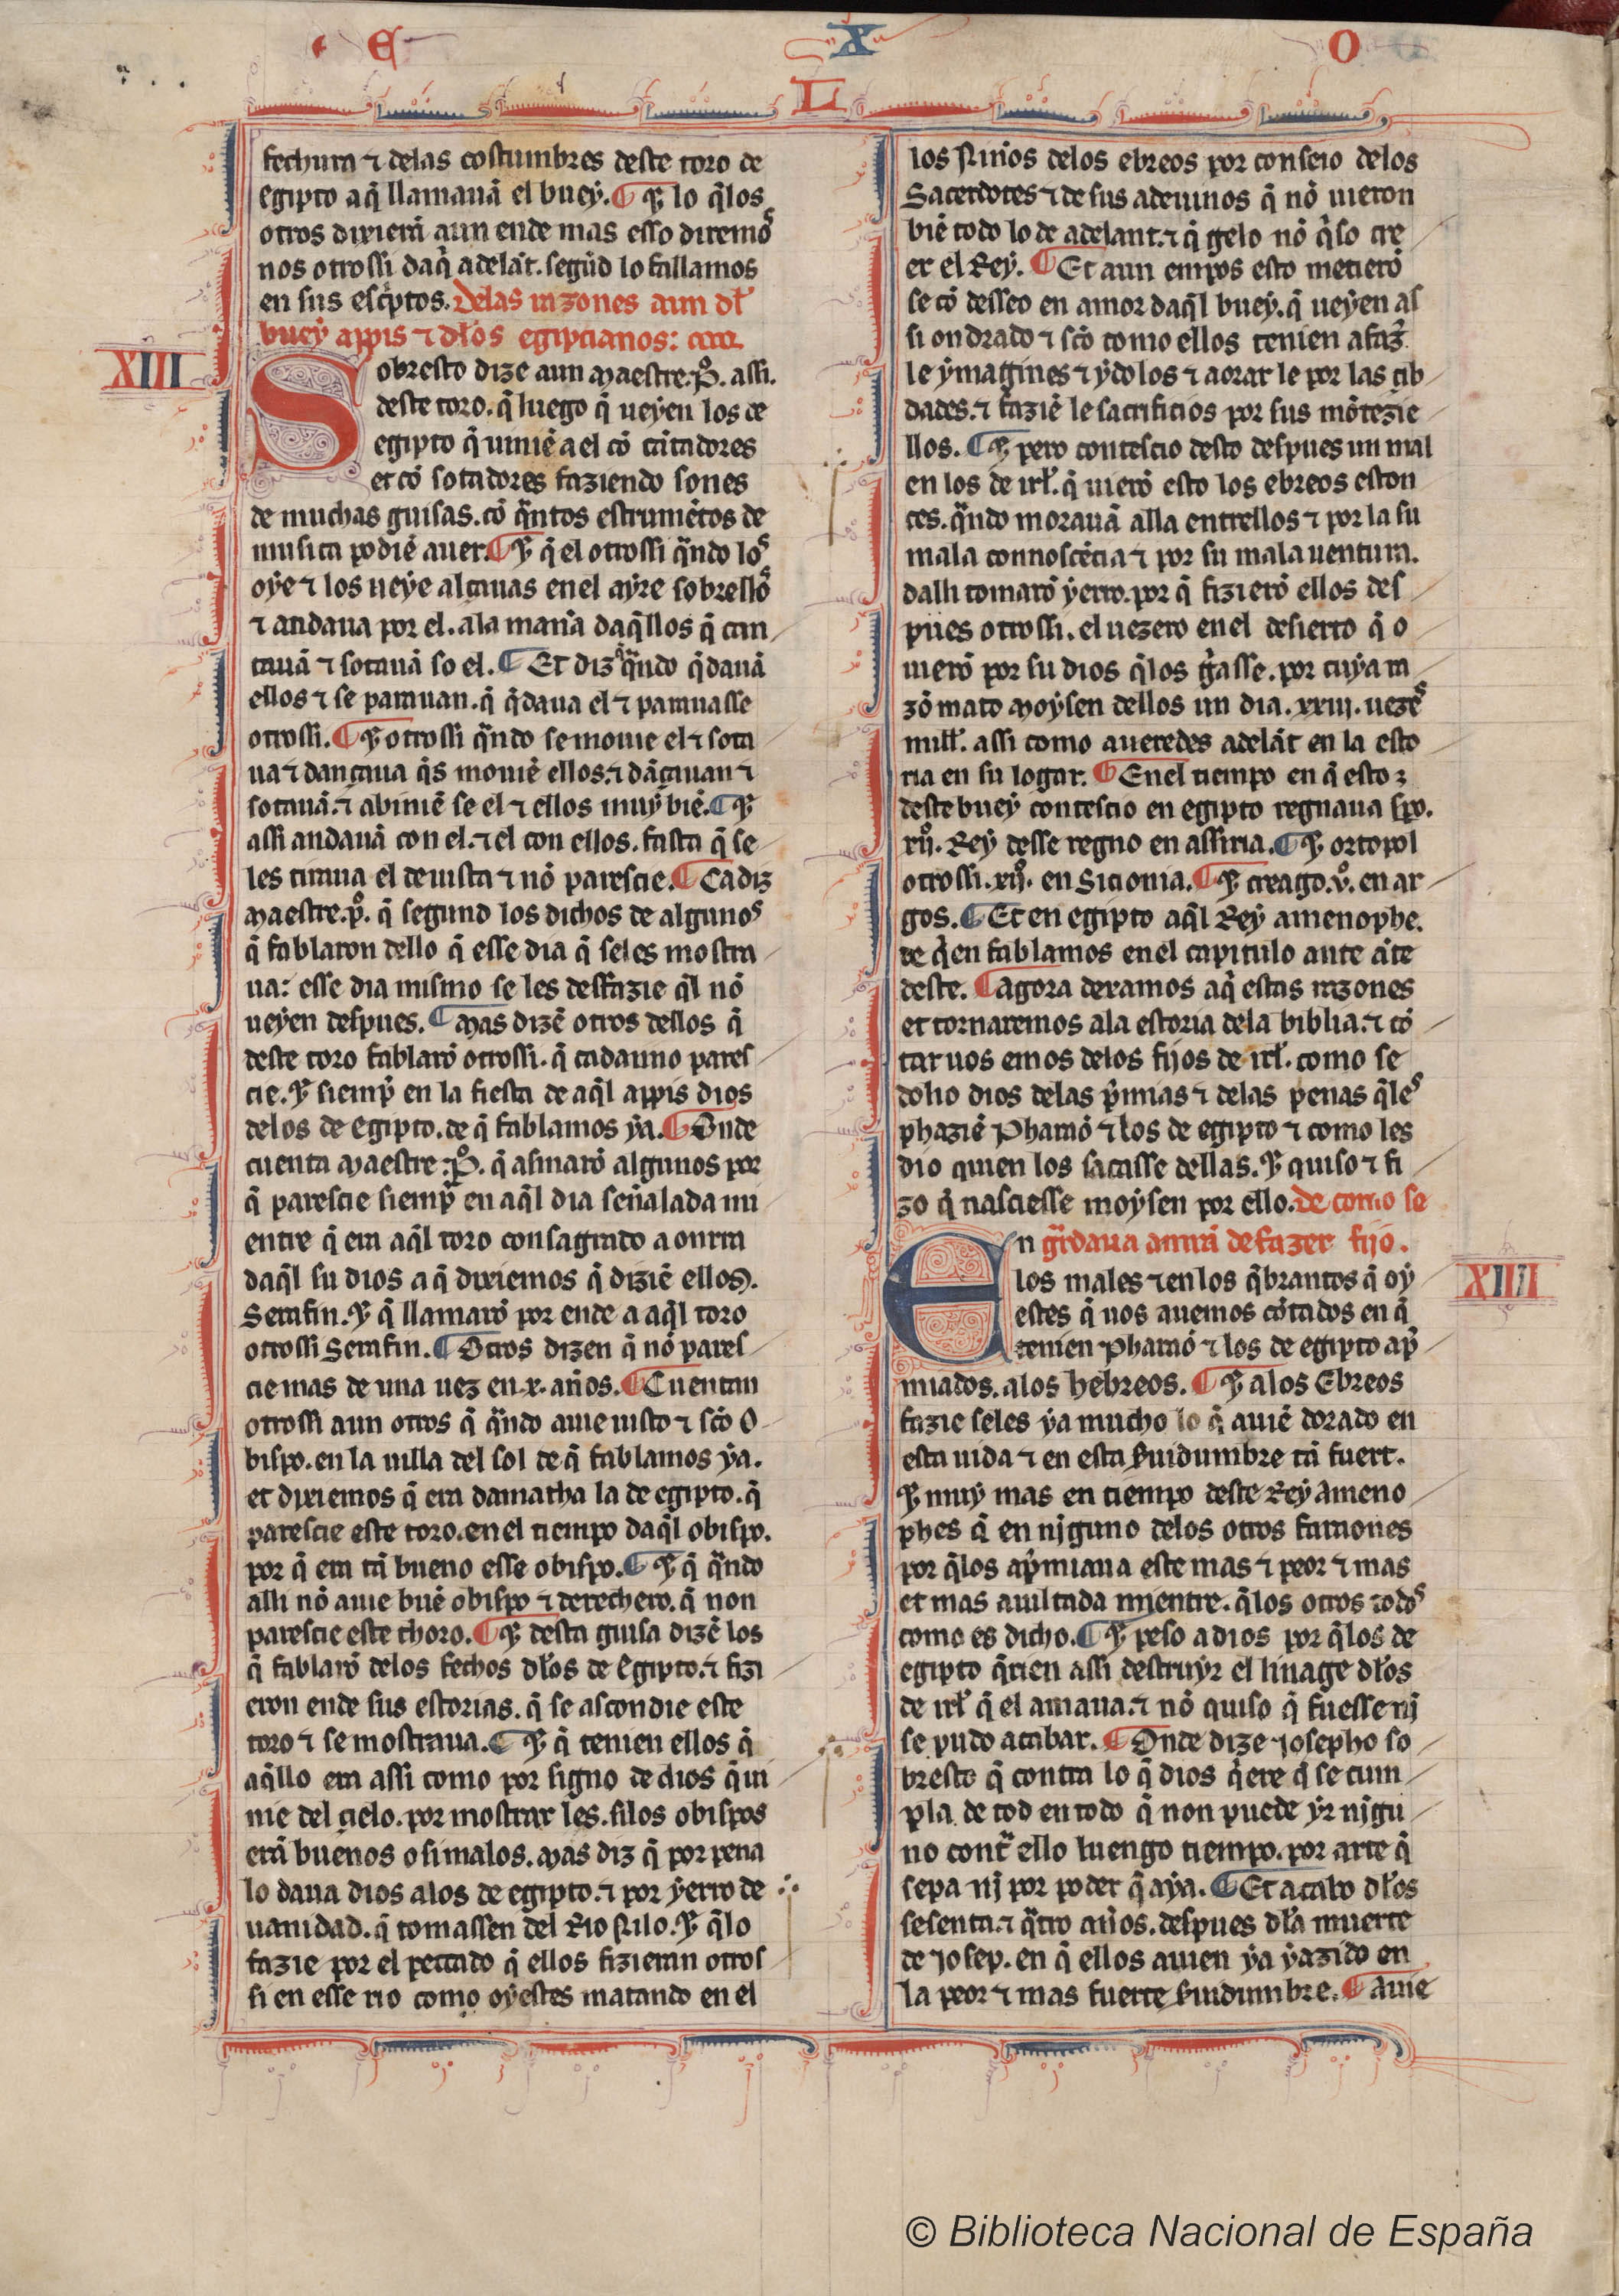 E X O
L
fechura ⁊ delas costumbres deste toro de
egipto aq̃ llamauã el buey. ¶ ⁊ lo q̃los
otros dixierã aun ende mas esso diremos
nos otrossi daq̃ adelãt. segũd lo fallamos
en sus escⁱptos. Delas razones aun dl̃
buey appis ⁊ dl̃os egipcianos:
XIII
Sobresto dize aun maestre. P̊. assi.
deste toro. q̃ luego q̃ ueyen los de
egipto q̃ uiniẽ a el cõ cãtadores
et cõ sotadores faziendo sones
de muchas guisas. cõ q̃ntos estrumẽtos de
musica podiẽ auer. ¶ ⁊ q̃ el otrossi q̃ndo los
oye ⁊ los ueye alçauas enel ayre sobrellos
⁊ andaua por el. ala manã daq̃llos q̃ can
tauã ⁊ sotauã so el. ¶ Et diz q̃ q̃ndo q̃dauã
ellos ⁊ se parauan. q̃ q̃daua el ⁊ parauasse
otrossi. ¶ ⁊ otrossi q̃ndo se mouie el ⁊ sota
ua ⁊ dançaua q̃s mouiẽ ellos. ⁊ dãçauan ⁊
sotauã. ⁊ abiniẽ se el ⁊ ellos muy biẽ. ¶ ⁊
assi andauã con el. ⁊ el con ellos. fasta q̃ se
les tiraua el deuista ⁊ nõ parescie. ¶ Ca diz
maestre. p̊. q̃ segund los dichos de algunos
q̃ fablaron dello q̃ esse dia q̃ seles mostra
ua: esse dia mismo se les desfazie q̃l nõ
ueyen despues. ¶ mas dizẽ otros dellos q̃
deste toro fablarõ otrossi. q̃ cadauno pares
cie. ⁊ siemp̃ en la fiesta de aq̃l appis dios
delos de egipto. de q̃ fablamos ya. ¶ Onde
cuenta maestre. P̊. q̃ asmarõ algunos por
q̃ parescie siemp̃ en aq̃l dia señalada mi
entre q̃ era aq̃l toro consagrado a onrra
daq̃l su dios a q̃ dixiemos q̃ diziẽ ellos.
Serafin. ⁊ q̃ llamarõ por ende a aq̃l toro
otrossi Serafin. ¶ Otros dizen q̃ nõ pares
cie mas de una uez en .x. años. ¶ Cuentan
otrossi aun otros q̃ q̃ndo auie uisto ⁊ scõ o
bispo. en la uilla del sol de q̃ fablamos ya.
et dixiemos q̃ era damatha la de egipto. q̃
parescie este toro. enel tiempo daq̃l obispo.
por q̃ era tã bueno esse obispo. ¶ ⁊ q̃ q̃ndo
alli nõ auie buẽ obispo ⁊ derechero. q̃ non
parescie este thoro. ¶ ⁊ desta guisa dizẽ los
q̃ fablarõ delos fechos dl̃os de Egipto. ⁊ fizi
eron ende sus estorias. q̃ se ascondie este
toro ⁊ se mostraua. ¶ ⁊ q̃ tenien ellos q̃
aq̃llo era assi como por signo de dios q̃ ui
nie del çielo. por mostrar les. silos obispos
erã buenos o si malos. mas diz q̃ por pena
lo daua dios alos de egipto. ⁊ por yerro de
uanidad. q̃ tomassen del Rio Nilo. ⁊ q̃lo
fazie por el peccado q̃ ellos fizieran otros
si en esse rio como oyestes matando en el
los Niños delos ebreos por conseio delos
Sacerdotes ⁊ de sus adeuinos q̃ nõ uieron
biẽ todo lo de adelant. ⁊ q̃ gelo nõ q̃so cre
er el Rey. ¶ Et aun empos esto metierõ
se cõ desseo en amor daq̃l buey. q̃ ueyen as
si ondrado ⁊ scõ como ellos tenien a faz̃
le ymagines ⁊ ydolos ⁊ aorar le por las cib
dades. ⁊ faziẽ le sacrificios por sus mõtezie
llos. ¶ ⁊ pero contescio desto despues un mal
en los de irl̃. q̃ uierõ esto los ebreos eston
ces. q̃ndo morauã alla entrellos ⁊ por la su
mala connoscẽcia ⁊ por su mala uentura.
dalli tomarõ yerro. por q̃ fizierõ ellos des
pues otrossi. el uezero en el desierto q̃ o
uierõ por su dios q̃los g̃asse. por cuya ra
zõ mato moysen dellos un dia. xxiij. uezes
mill̃. assi como aueredes adelãt en la esto
ria en su logar. ¶ Enel tiempo en q̃ esto
deste buey contescio en egipto regnaua spo.
xij̊. Rey desse regno en assiria. ¶ ⁊ ortopol
otrossi. xij̊. en Sicionia. ¶ ⁊ creago. v̊. en ar
gos. ¶ Et en egipto aq̃l Rey amenophe.
de q̃en fablamos en el capitulo ante ãte
deste. ¶ agora dexamos aq̃ estas razones
et tornaremos ala estoria dela biblia. ⁊ cõ
tar uos emos delos fijos de irl̃. como se
dolio dios delas p̃mias ⁊ delas penas q̃les
phaziẽ Pharaõ ⁊ los de egipto ⁊ como les
dio quien los sacasse dellas. ⁊ quiso ⁊ fi
zo q̃ nasciesse moysen por ello. de como se
g̃rdaua amrã de fazer fijo.
XIIII
En los males ⁊ en los q̃brantos q̃ oy
estes q̃ uos auemos cõtados en q̃
tenien Pharaõ ⁊ los de egipto ap̃
miados. alos hebreos. ¶ ⁊ alos Ebreos
fazie seles ya mucho lo q̃ auiẽ dorado en
esta uida ⁊ en esta s̃uidumbre tã fuert.
⁊ muy mas en tiempo deste Rey Ameno
phes q̃ en njguno delos otros faraones
por q̃los ap̃miaua este mas ⁊ peor ⁊ mas
et mas auiltada mientre. q̃los otros todos
como es dicho. ¶ ⁊ peso a dios por q̃los de
egipto q̃rien assi destruyr el linage dl̃os
de irl̃ q̃ el amaua. ⁊ nõ quiso q̃ fuesse nj
se pudo acabar. ¶ Onde dize iosepho so
bresto q̃ contra lo q̃ dios q̃ere q̃ se cum
pla de tod en todo q̃ non puede yr njgu
no cont̃ ello luengo tiempo. por arte q̃
sepa nj por poder q̃ aya. ¶ Et acabo dl̃os
sesenta. ⁊ q̃tro años. despues dl̃a muerte
de iosep. en q̃ ellos auien ya yazido en
la peor ⁊ mas fuerte s̃uidumbre. ¶ auie
© Biblioteca Nacional de España